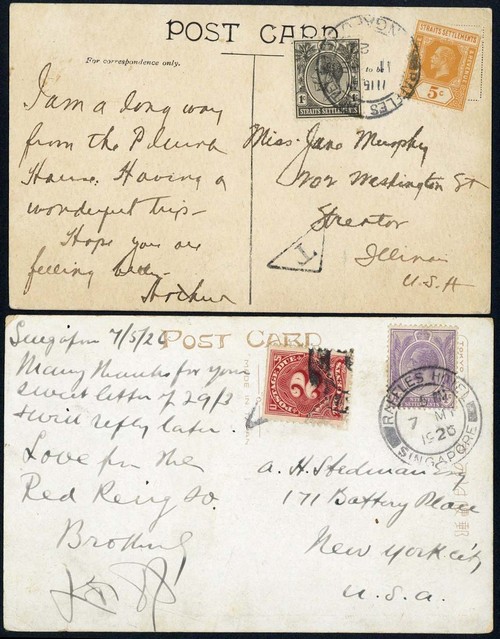 POST CARD
For correspondence only.
I am a long way
from the
House. Having a
wonderful trip –
Hope you are
feeling
STRAITS SETTLEMENTS
STRAITS SETTLEMENTS
5c
Miss Jane Murphy
202 Washington St
Streator
Illinois
U.S.A
T
POST CARD
Singapore 7/5/26
Many thanks for your
sweet letter of 29/3
& will reply later.
Love from the
Red
POSTAGE DUE
2
RAFFLES HOTEL
7 MY
1926
SINGAPORE
A. H. Stedman Esq
171 Battery Place
New York City
U.S.A.